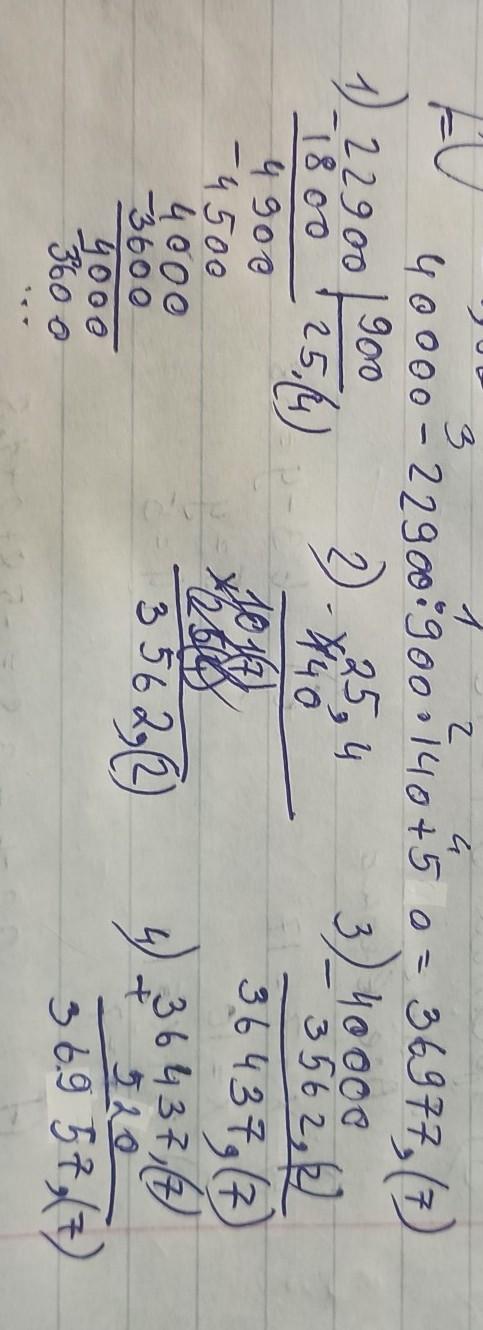 3 1 2 4
40000 - 22900 : 900 · 140 + 5 0 = 36977,(7)
1) 22900 | 900
- 1800 25,(4)
4900
- 4500
4000
- 3600
4000
- 3600
...
2) 25,4
× 140
3562,(2)
3) 40000
- 3562,(2)
36437,(7)
4) 36437,(7)
+ 520
36957,(7)